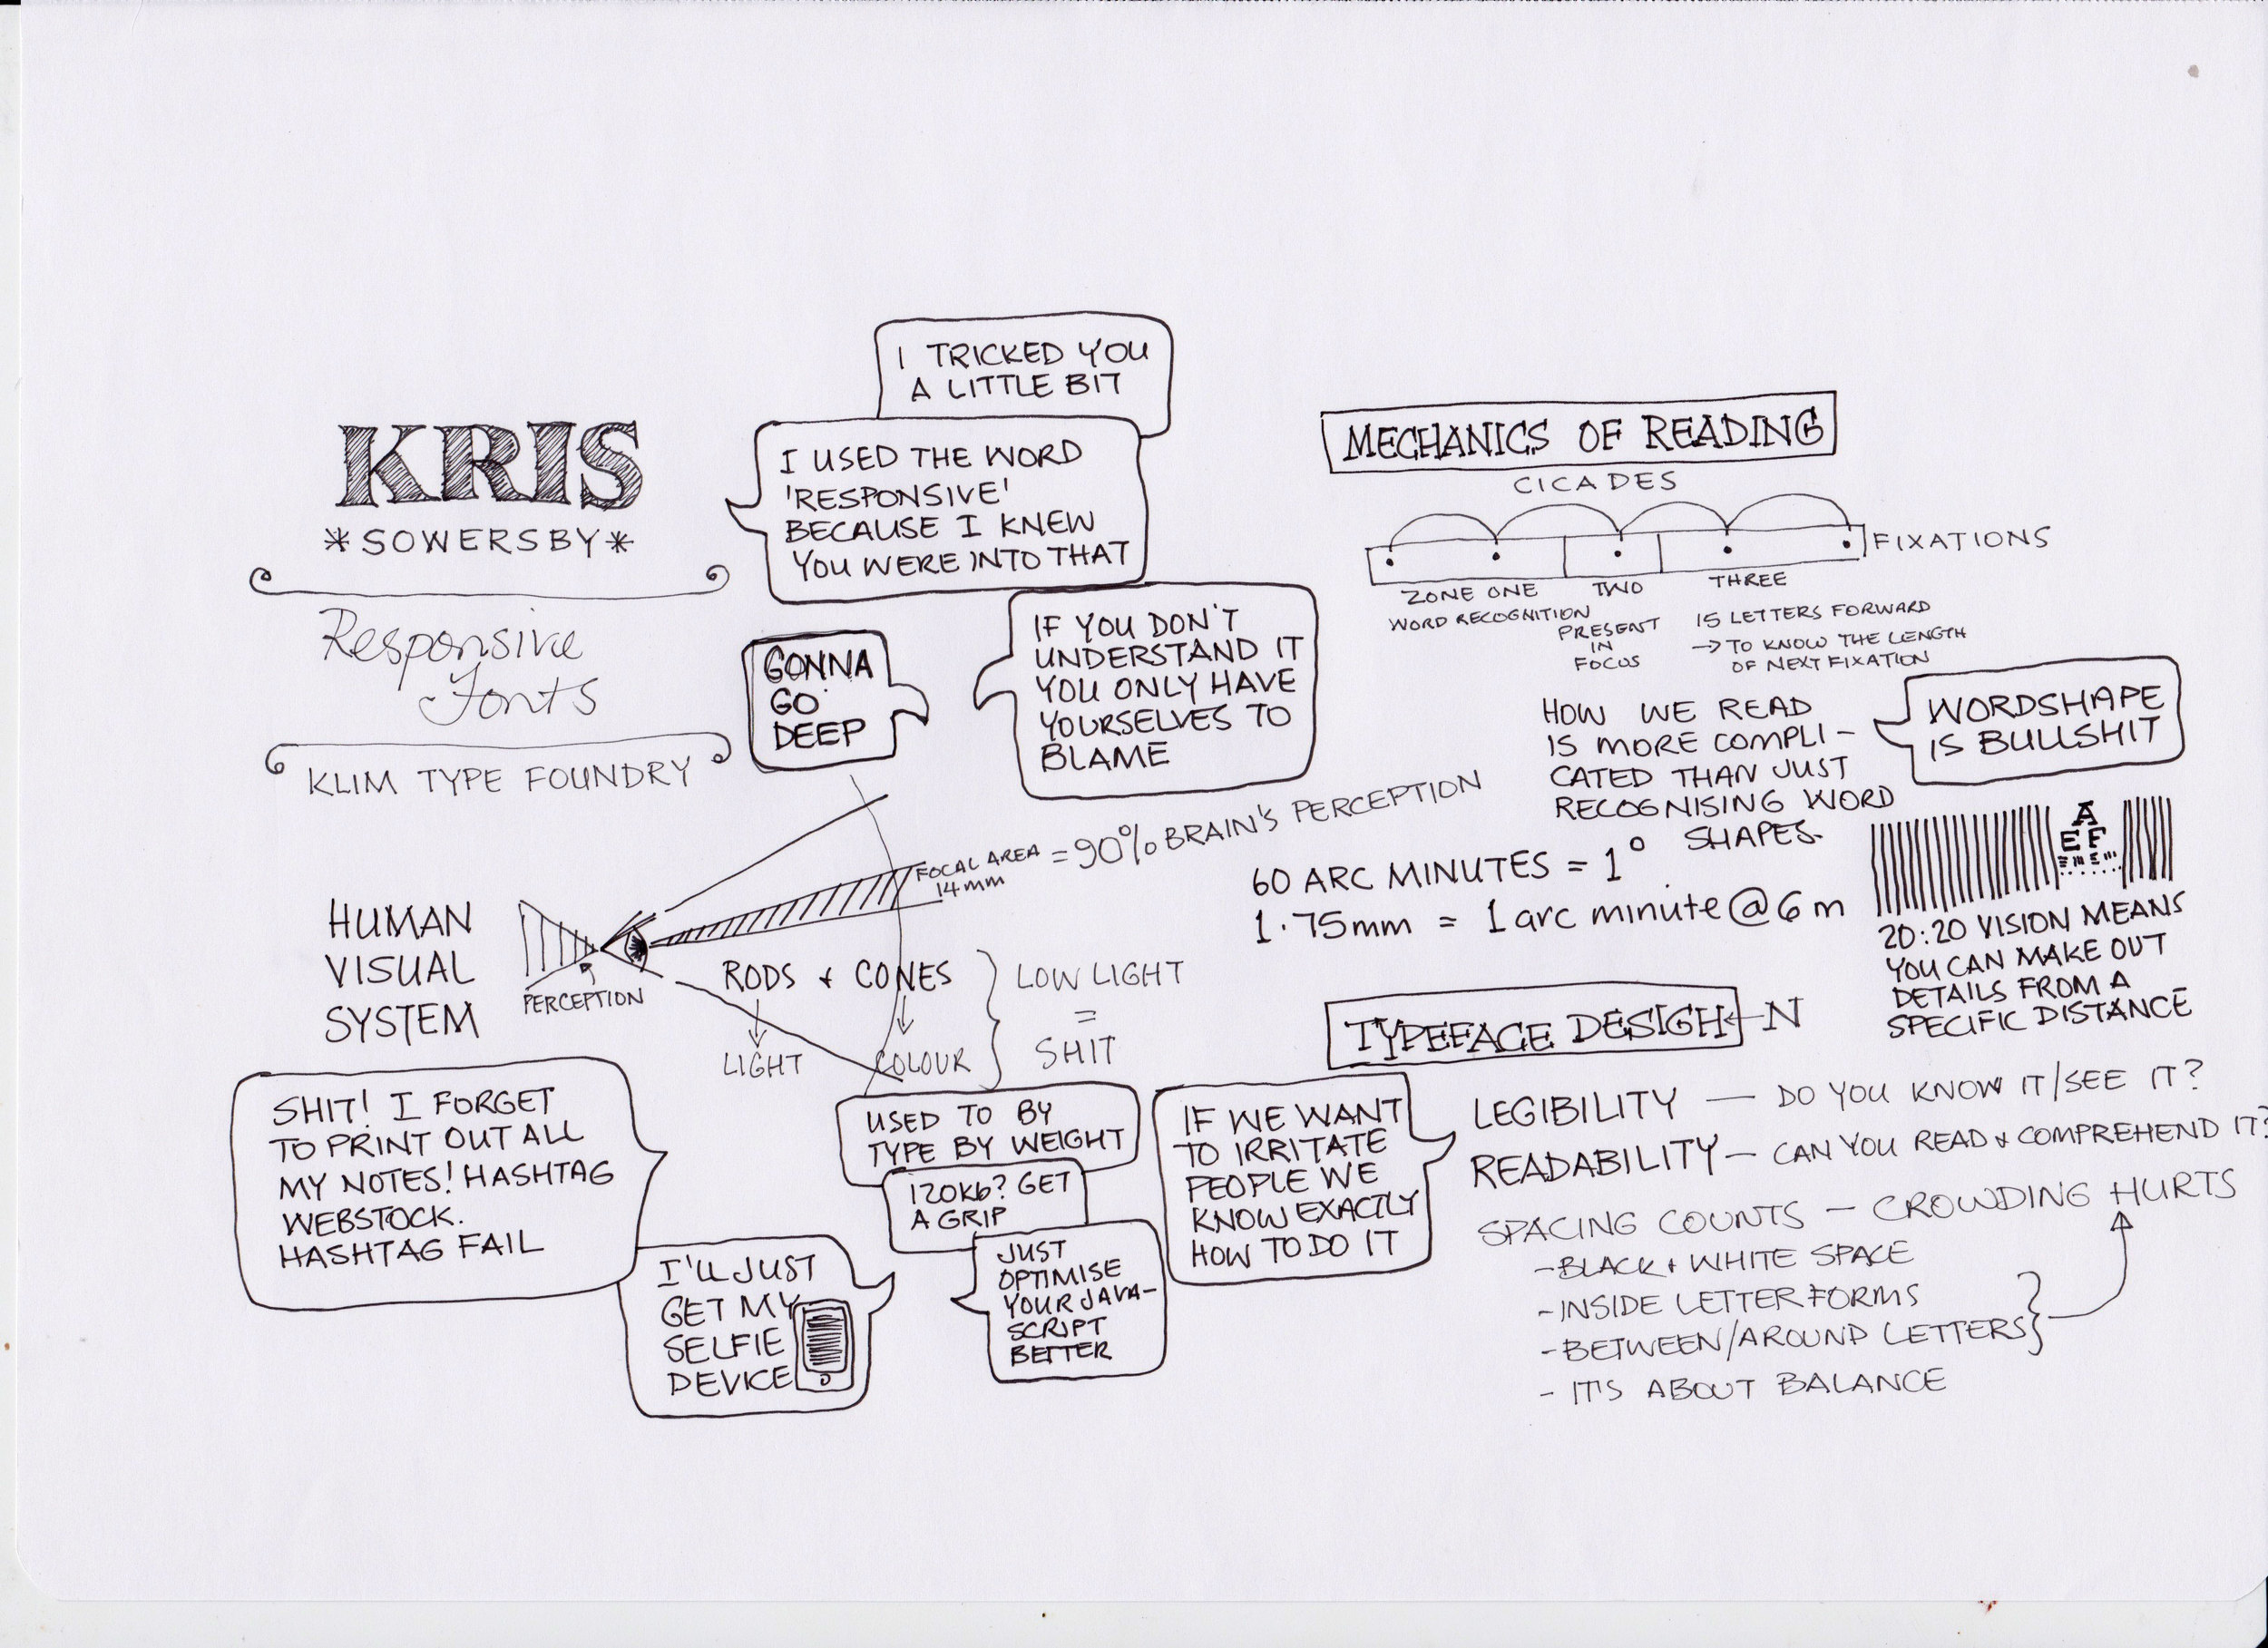 KRIS
*SOWERSBY*
Responsive
Fonts
KLIM TYPE FOUNDRY
I TRICKED YOU
A LITTLE BIT
I USED THE WORD
'RESPONSIVE'
BECAUSE I KNEW
YOU WERE INTO THAT
GONNA
GO
DEEP
IF YOU DON'T
UNDERSTAND IT
YOU ONLY HAVE
YOURSELVES TO
BLAME
HUMAN
VISUAL
SYSTEM
PERCEPTION
FOCAL AREA
14mm
= 90% BRAIN'S PERCEPTION
RODS + CONES
LIGHT
COLOUR
LOW LIGHT
=
SHIT
SHIT! I FORGET
TO PRINT OUT ALL
MY NOTES! HASHTAG
WEBSTOCK.
HASHTAG FAIL
I'LL JUST
GET MY
SELFIE
DEVICE
USED TO BY
TYPE BY WEIGHT
120Kb? GET
A GRIP
JUST
OPTIMISE
YOUR JAVA-
SCRIPT
BETTER
MECHANICS OF READING
CICADES
FIXATIONS
ZONE ONE
WORD RECOGNITION
TWO
PRESENT
IN
FOCUS
THREE
15 LETTERS FORWARD
→ TO KNOW THE LENGTH
OF NEXT FIXATION
HOW WE READ
IS MORE COMPLI-
CATED THAN JUST
RECOGNISING WORD
SHAPES.
WORDSHAPE
IS BULLSHIT
60 ARC MINUTES = 1°
1.75mm = 1 arc minute @ 6m
A
EF
20:20 VISION MEANS
YOU CAN MAKE OUT
DETAILS FROM A
SPECIFIC DISTANCE
TYPEFACE DESIGH ← N
IF WE WANT
TO IRRITATE
PEOPLE WE
KNOW EXACTLY
HOW TO DO IT
LEGIBILITY — DO YOU KNOW IT/SEE IT?
READABILITY — CAN YOU READ + COMPREHEND IT?
SPACING COUNTS — CROWDING HURTS
- BLACK + WHITE SPACE
- INSIDE LETTERFORMS
- BETWEEN/AROUND LETTERS
- IT'S ABOUT BALANCE